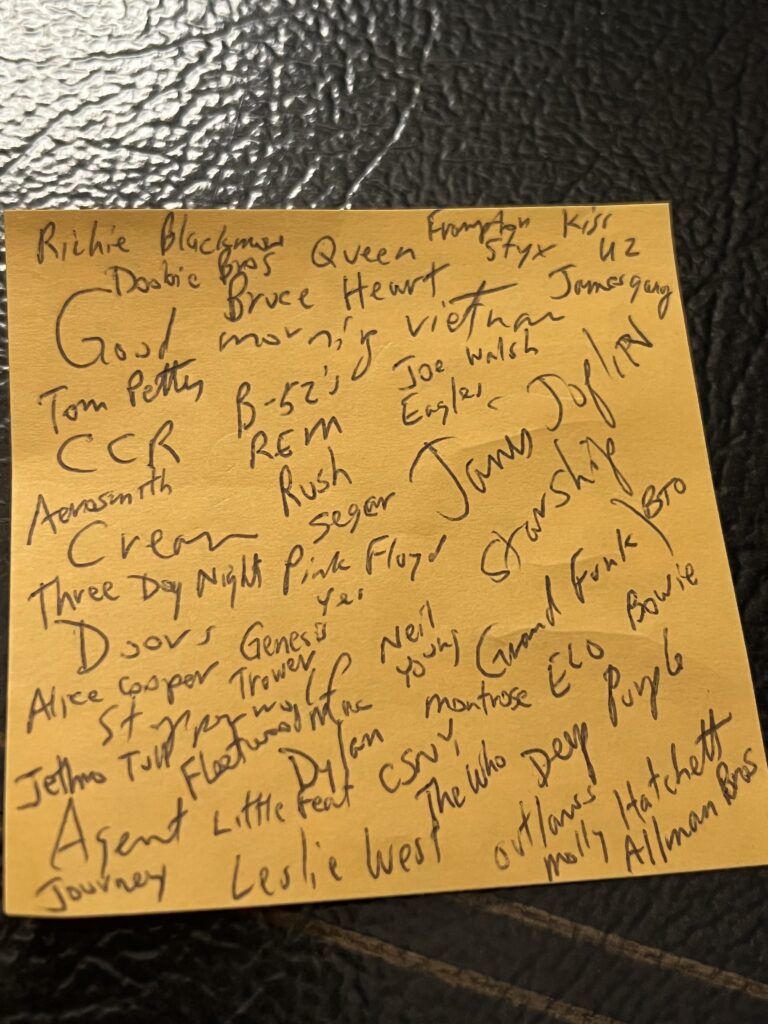 Richie Blackmore Queen Frampton Kiss
Doobie Bros Styx U2
Bruce Heart Jamesgang
Good morning vietnam
Tom Petty B-52's Joe Walsh
CCR REM Eagles Janis Joplin
Aerosmith Rush
Cream Segar Starship
Three Dog Night Pink Floyd BTO
Doors Genesis Yes Grand Funk
Alice Cooper Trower Neil Young Bowie
Steppenwolf montrose ELO
Jethro Tull Fleetwood Mac Deep Purple
Dylan CSNY The Who
Agent Little Feat outlaws Molly Hatchett
Journey Leslie West Allman Bros